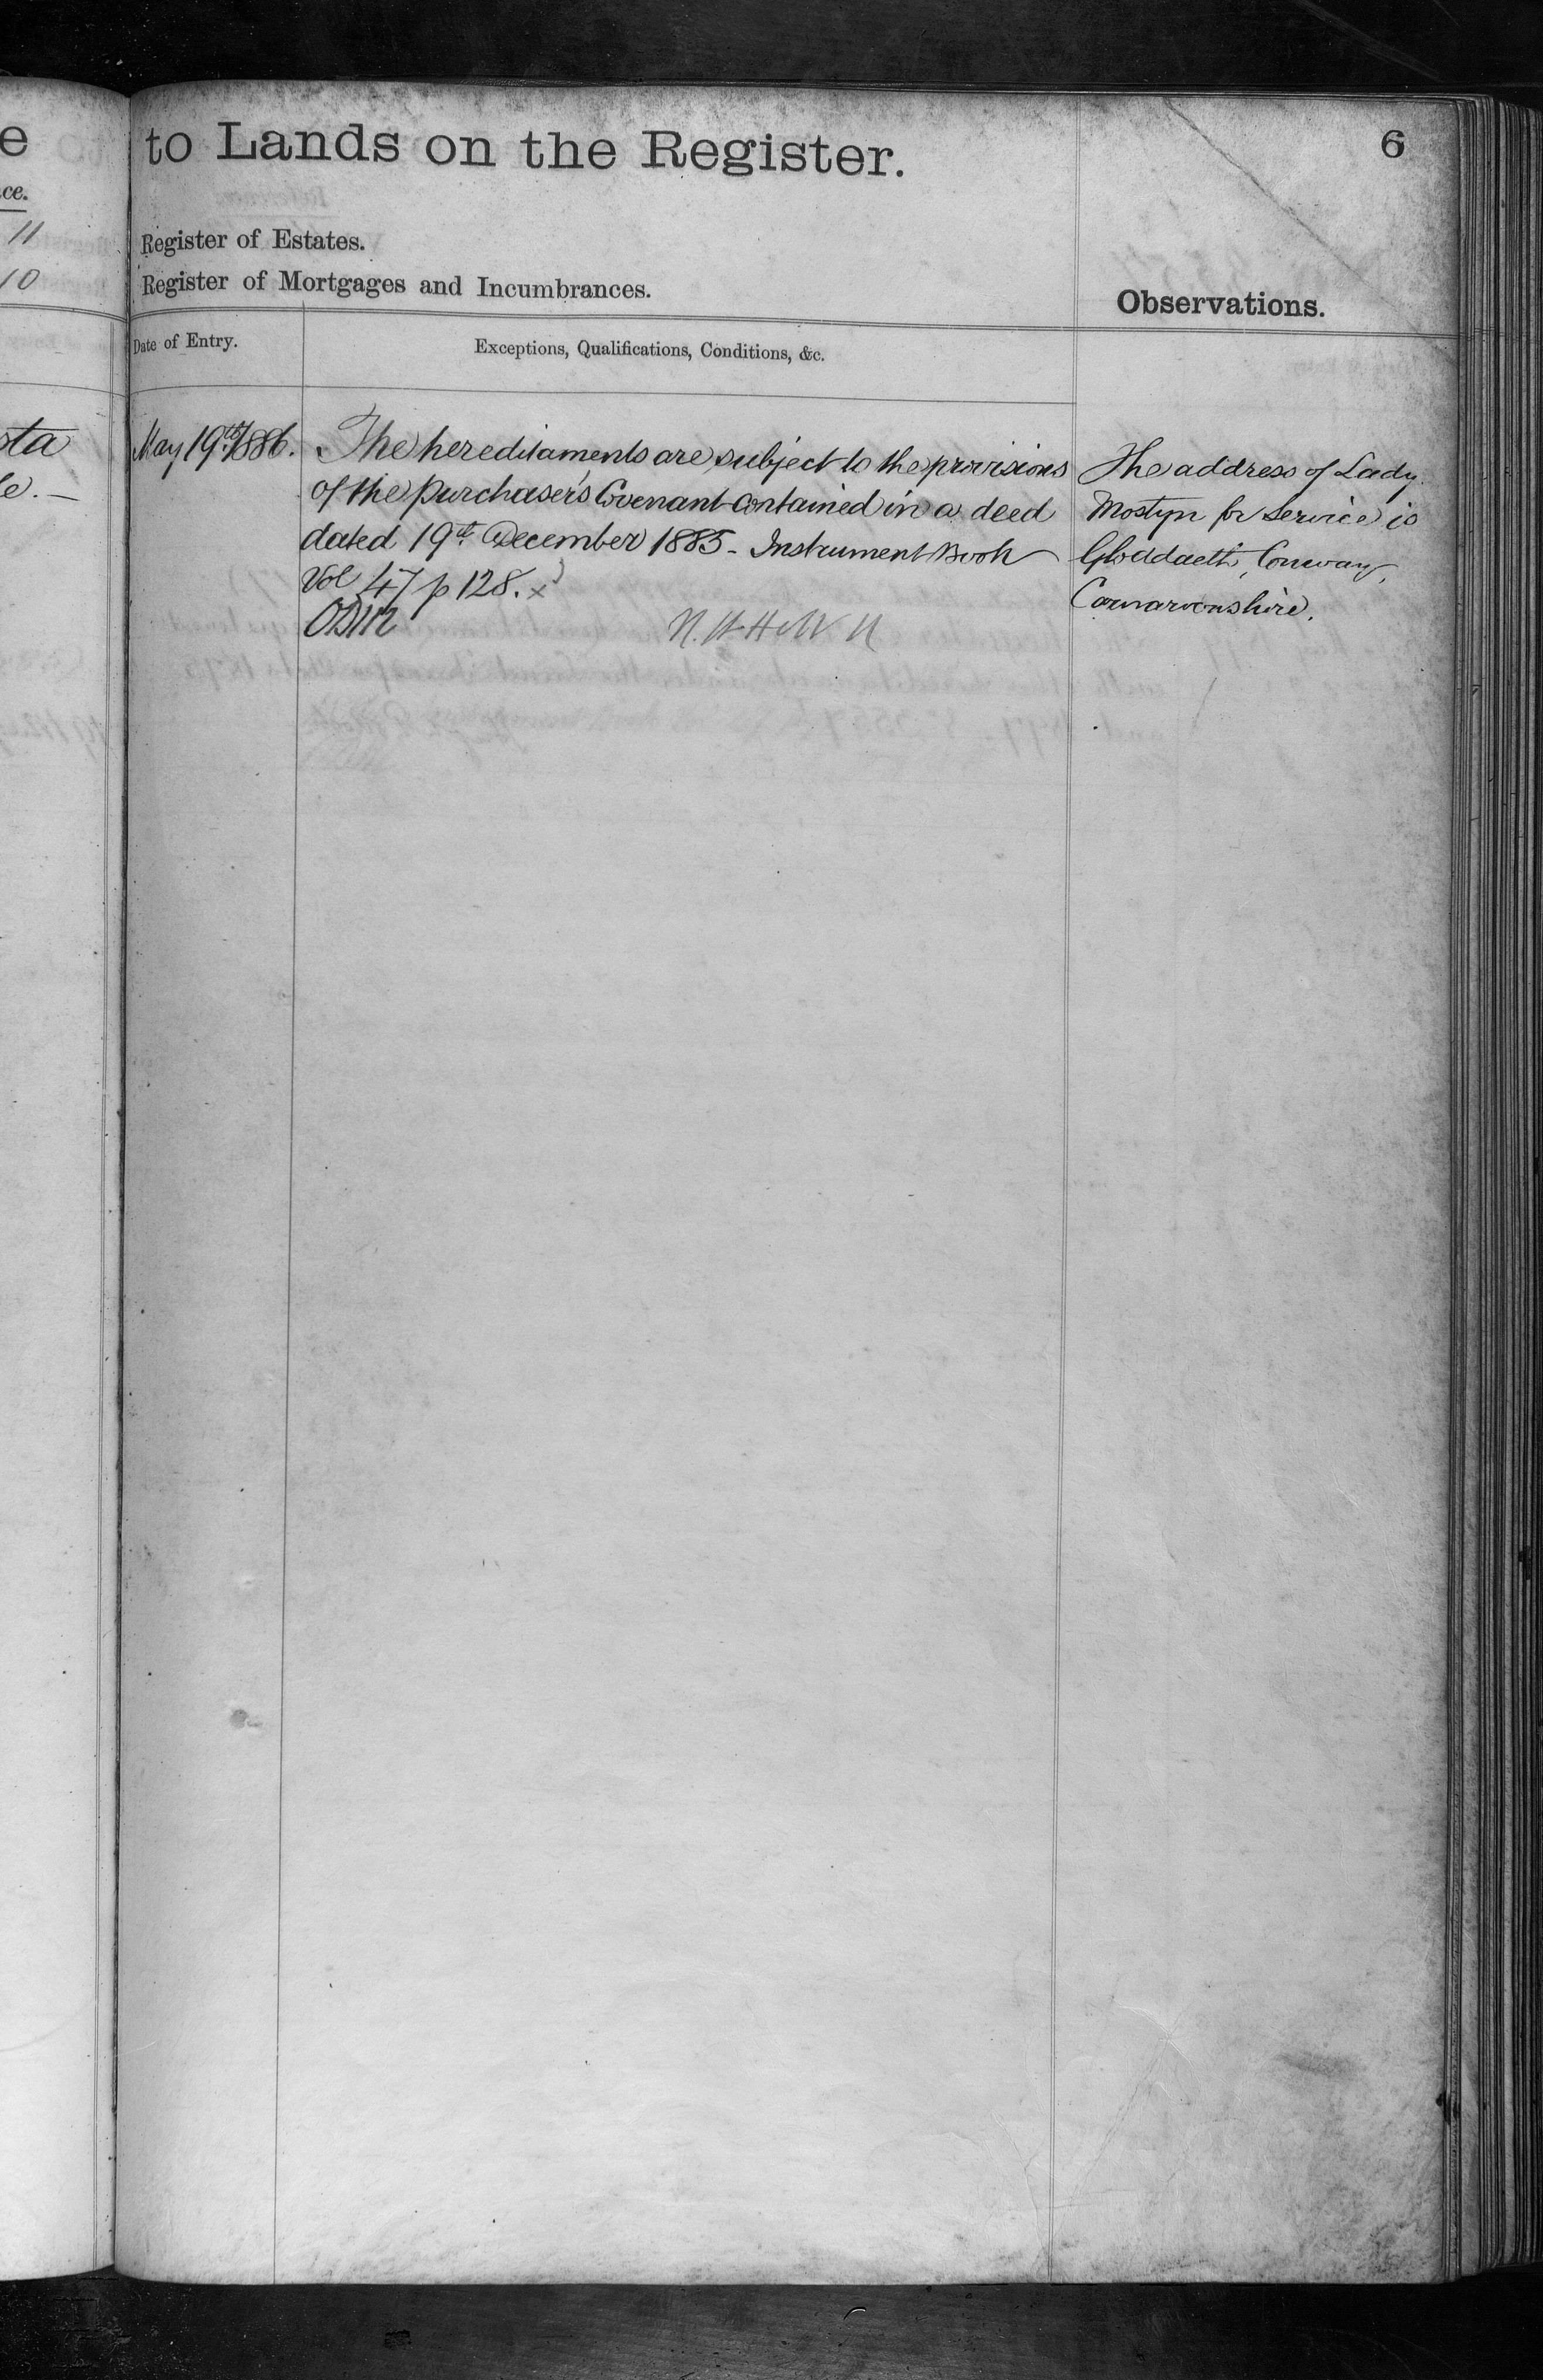 e
ce.
11
10
sta
le. —
to Lands on the Register.
6
Register of Estates.
Register of Mortgages and Incumbrances.
Observations.
Date of Entry.
Exceptions, Qualifications, Conditions, &c.
May 19th 1886.
The hereditaments are subject to the provisions
of the purchaser's Covenant contained in a deed
dated 19th December 1885 - Instrument Book
Vol 47 p 128. x
The address of Lady
Mostyn for service is
Gloddaeth, Conway,
Carnarvonshire.